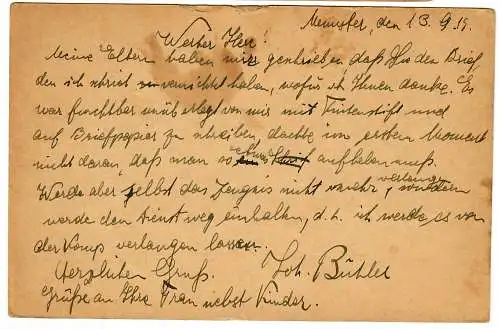 Meunster, den 13.9.15.
Werter Herr!
Meine Eltern haben mir geschrieben, daß Sie den Brief,
den ich schrieb vernichtet haben, wofür ich Ihnen danke. Es
war furchtbar unüberlegt von mir mit Tintenstift und
auf Briefpapier zu schreiben, dachte im ersten Moment
nicht daran, daß man so etwas aufheben muß.
Werde aber selbst das Zeugnis nicht mehr verlangen, sondern
werde den Dienstweg einhalten, d.h. ich werde es von
der Komp verlangen lassen.
Herzlichen Gruß. Joh. Bühler
Grüße an Ihre Frau nebst Kinder.